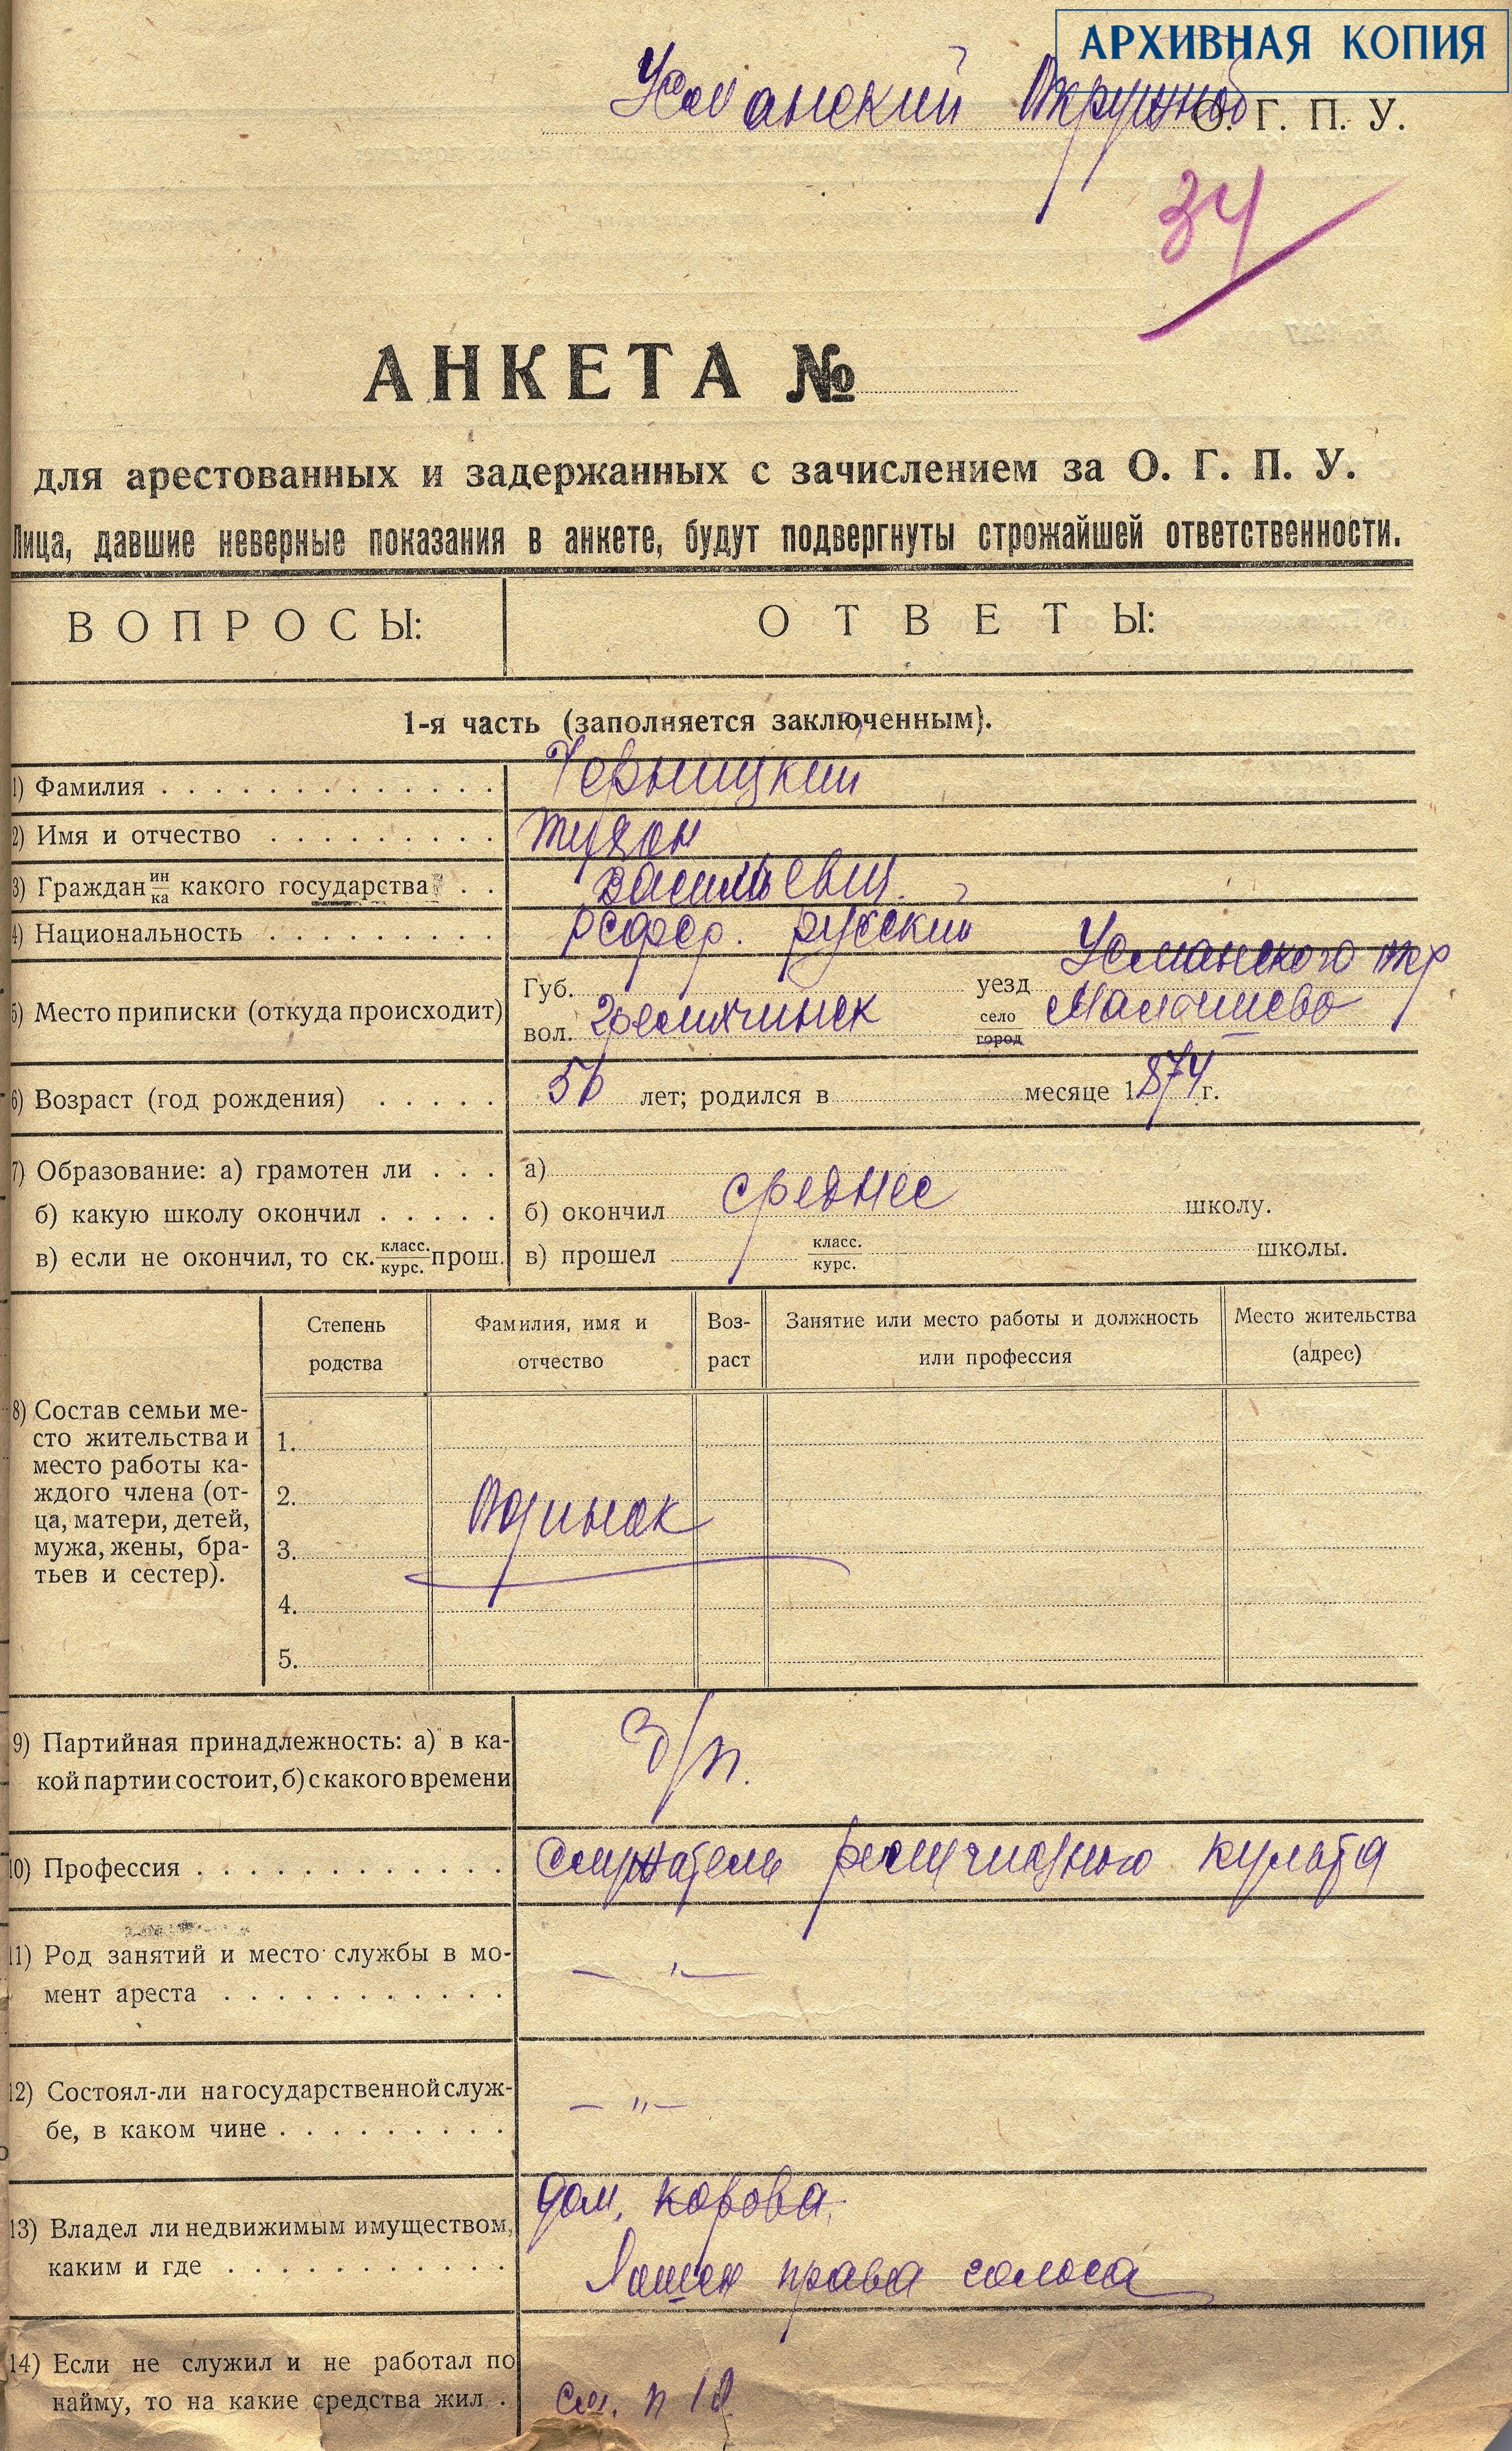 АРХИВНАЯ КОПИЯ
Усманский Окружной О. Г. П. У.
34
АНКЕТА №
для арестованных и задержанных с зачислением за О. Г. П. У.
Лица, давшие неверные показания в анкете, будут подвергнуты строжайшей ответственности.
ВОПРОСЫ: ОТВЕТЫ:
1-я часть (заполняется заключенным).
1) Фамилия . . . . . . . . . . . . .
2) Имя и отчество . . . . . . . . .
3) Граждан ин/ка какого государства . . Васильевич.
4) Национальность . . . . . . . . . РСФСР. русский
5) Место приписки (откуда происходит) Губ. уезд Усманского окр
вол. село/город Малышево
6) Возраст (год рождения) . . . . . 56 лет; родился в месяце 1874 г.
7) Образование: а) грамотен ли . . . а)
б) какую школу окончил . . . . . б) окончил среднее школу.
в) если не окончил, то ск. класс./курс. прош. в) прошел класс./курс. школы.
Степень родства
Фамилия, имя и отчество
Возраст
Занятие или место работы и должность или профессия
Место жительства (адрес)
8) Состав семьи ме-
сто жительства и
место работы ка-
ждого члена (от-
ца, матери, детей,
мужа, жены, бра-
тьев и сестер).
1.
2.
Одинок
3.
4.
5.
9) Партийная принадлежность: а) в ка-
кой партии состоит, б) с какого времени
б/п.
10) Профессия . . . . . . . . . . . . служитель религиозного культа
11) Род занятий и место службы в мо-
мент ареста . . . . . . . . . . .
— „ —
12) Состоял-ли на государственной служ-
бе, в каком чине . . . . . . . . .
— „ —
13) Владел ли недвижимым имуществом,
каким и где . . . . . . . . . . .
дом, корова.
Лишен права голоса
14) Если не служил и не работал по
найму, то на какие средства жил .
см. п 10.